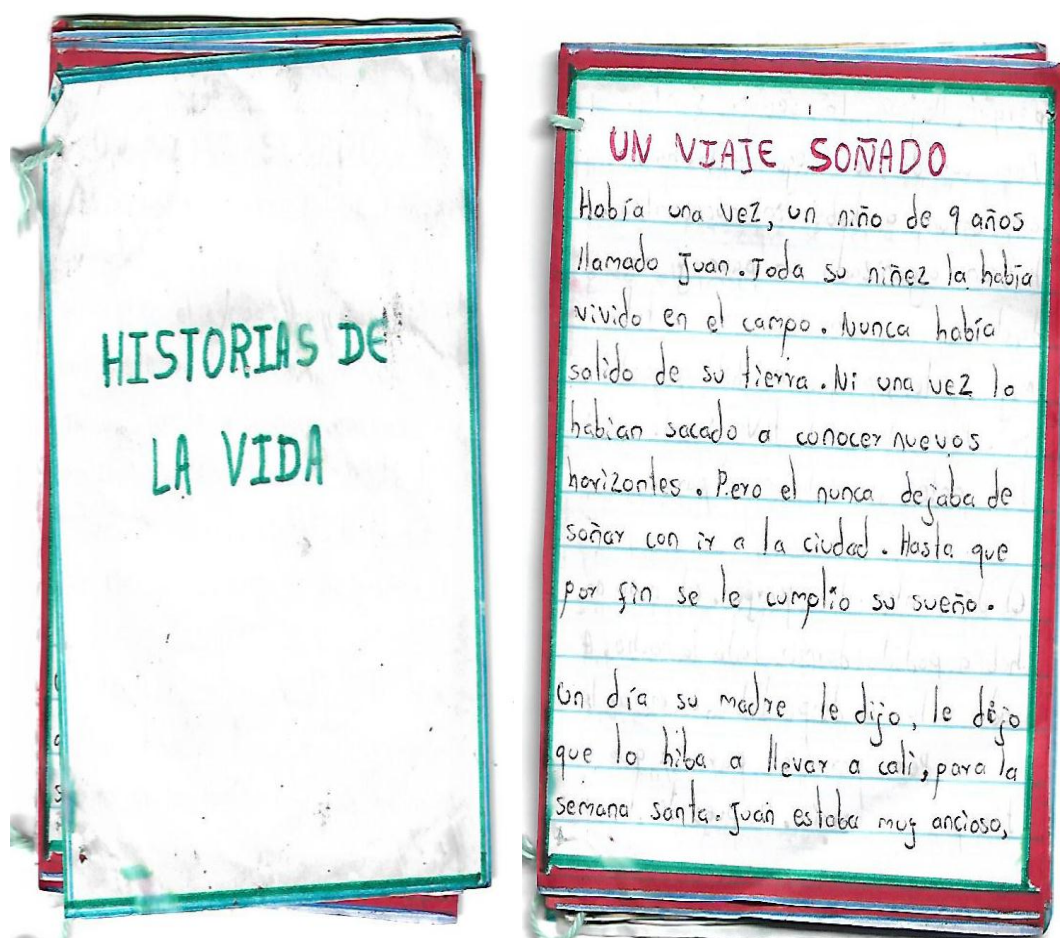 HISTORIAS DE
LA VIDA
UN VIAJE SOÑADO
Había una vez, un niño de 9 años
llamado Juan. Toda su niñez la había
vivido en el campo. Nunca había
salido de su tierra. Ni una vez lo
habian sacado a conocer nuevos
horizontes. Pero el nunca dejaba de
soñar con ir a la ciudad. Hasta que
por fin se le cumplio su sueño.
un día su madre le dijo, le dijo
que lo hiba a llevar a cali, para la
semana santa. Juan estaba muy ancioso,